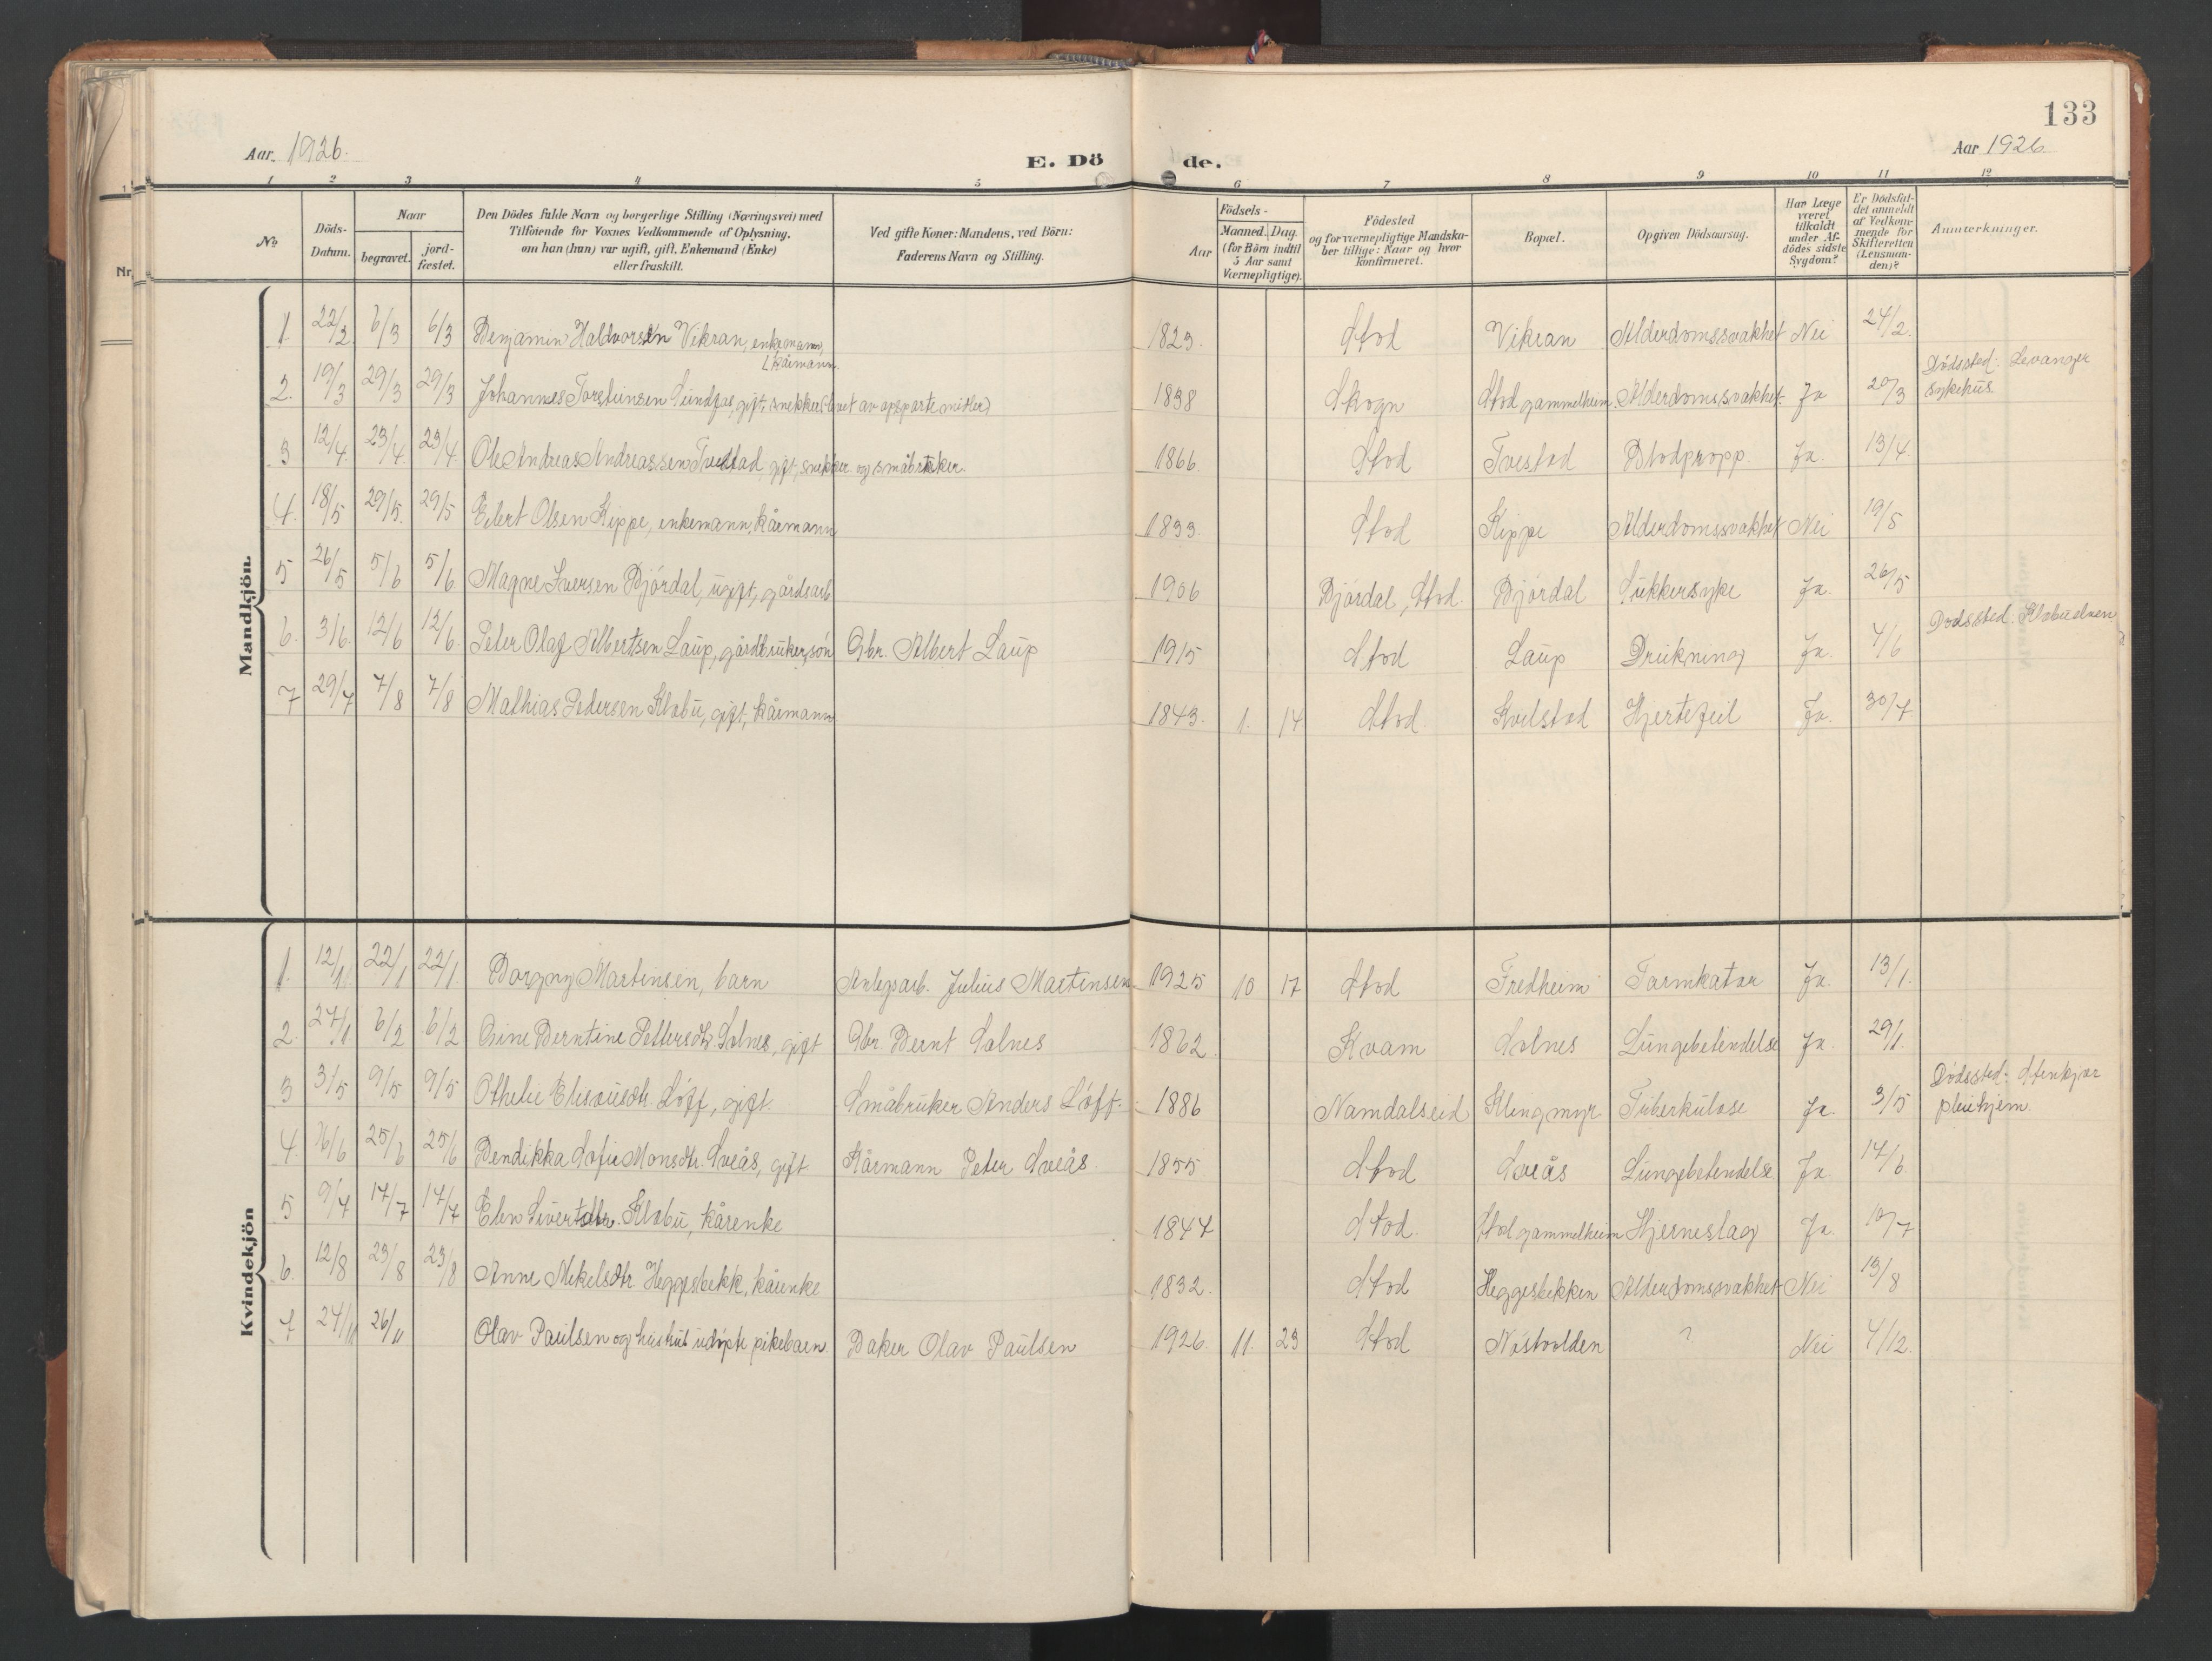 133
Aar. 1926.
E. Dö de.
Aar 1926.
1 2 3 4 5 6 7 8 9 10 11 12
No
Döds-Datum.
Naar
begravet.
jord-fæstet.
Den Dödes fulde Navn og borgerlige Stilling (Næringsvei) med
Tilföiende for Voxnes Vedkommende af Oplysning,
om han (hun) var ugift, gift, Enkemand (Enke)
eller fraskilt.
Ved gifte Koner: Mandens, ved Börn:
Faderens Navn og Stilling.
Födsels-
Aar
Maaned. Dag.
(for Börn indtil
5 Aar samt
Værnepligtige).
Födested
og for værnepligtige Mandska-
ber tillige: Naar og hvor
konfirmeret.
Bopæl.
Opgiven Dödsaarsag.
Har Læge
været
tilkaldt
under Af-
dödes sidste
Sygdom?
Er Dödsfal-
det anmeldt
af Vedkom-
mende for
Skifteretten
(Lensman-
den)?
Anmerkninger.
Nr
Mandkjön.
1. 22/2 6/3 6/3 Benjamin Haldvorsen Vikran, enkemann, kårmann. 1829. Stod Vikran Alderdomssvakhet Nei 24/2.
2. 19/3 29/3 29/3 Johannes Torsteinsen gift, snekker (levet av opsparte midler) 1838 Skogn Stod gammelheim Alderdomssvakhet. Ja 20/3 Dödssted: Levanger sykehus.
3 12/4. 23/4. 23/4. Ole Andreas Andreassen Tvestad, gift, snekker og småbruker. 1866. Stod Tvestad Blodpropp. Ja. 13/4.
4. 18/5 29/5. 29/5 Eilert Olsen Kippe, enkemann, kårmann 1833. Stod Kippe Alderdomssvakhet Nei 19/5
5 26/5 5/6 5/6 Magne Iversen Bjórdal, ugift, gårdsarb. 1906 Bjórdal, Stod. Bjórdal Sukkersyke Ja. 26/5
6. 3/6. 12/6 12/6. Peter Olaf Albertsen Laup, gårdbruker, són Gbr. Albert Laup 1915 Stod Laup Drukning Ja. 4/6 Dødssted: Klæbuelven
7 29/7 7/8 7/8 Mathias Pedersen Klæbu, gift, kårmann 1843. 1. 14 Stod. Kvelstad Hjertefeil Ja. 30/7
Kvindekjön
1. 12/1. 22/1 22/1. Borgny Martinsen, barn Anlegsarb. Julius Martinsen 1925 10 17 Stod Fredheim Tarmkatar Ja. 13/1.
2. 27/1. 6/2 6/2 Berntine Pettersdtr. Solnes, gift Gbr. Bernt Solnes 1862. Kvam Solnes Lungebetendelse Ja. 29/1.
3 3/5 9/5 9/5 Othelie Eliseusdtr. Lóff, gift. Småbruker Anders Lóff. 1886 Namdalseid Klingmyr Tuberkulose Ja. 3/5 Dödssted: Stenkjær pleiehjem.
4. 16/6 25/6 25/6 Bendikka Sofie Monsdtr. Sveås, gift Kårmann Peter Sveås. 1855. Stod Sveås Lungebetendelse. Ja. 17/6.
5 9/7 17/7 17/7 Elen Sivertsdtr. Klæbu, kårenke 1847 Stod. Stod gammelheim Hjerneslag Ja. 10/7
6. 12/8 23/8 23/8 Anne Mikelsdtr. Heggesbekk, kårenke 1832. Stod Heggesbekken Alderdomssvakhet Nei 13/8
7. 24/11 26/11 Olav Paulsen og hustrus udöpte pikebarn. Baker Olav Paulsen 1926. 11. 23 Stod Nóstvolden ? Nei 4/12.